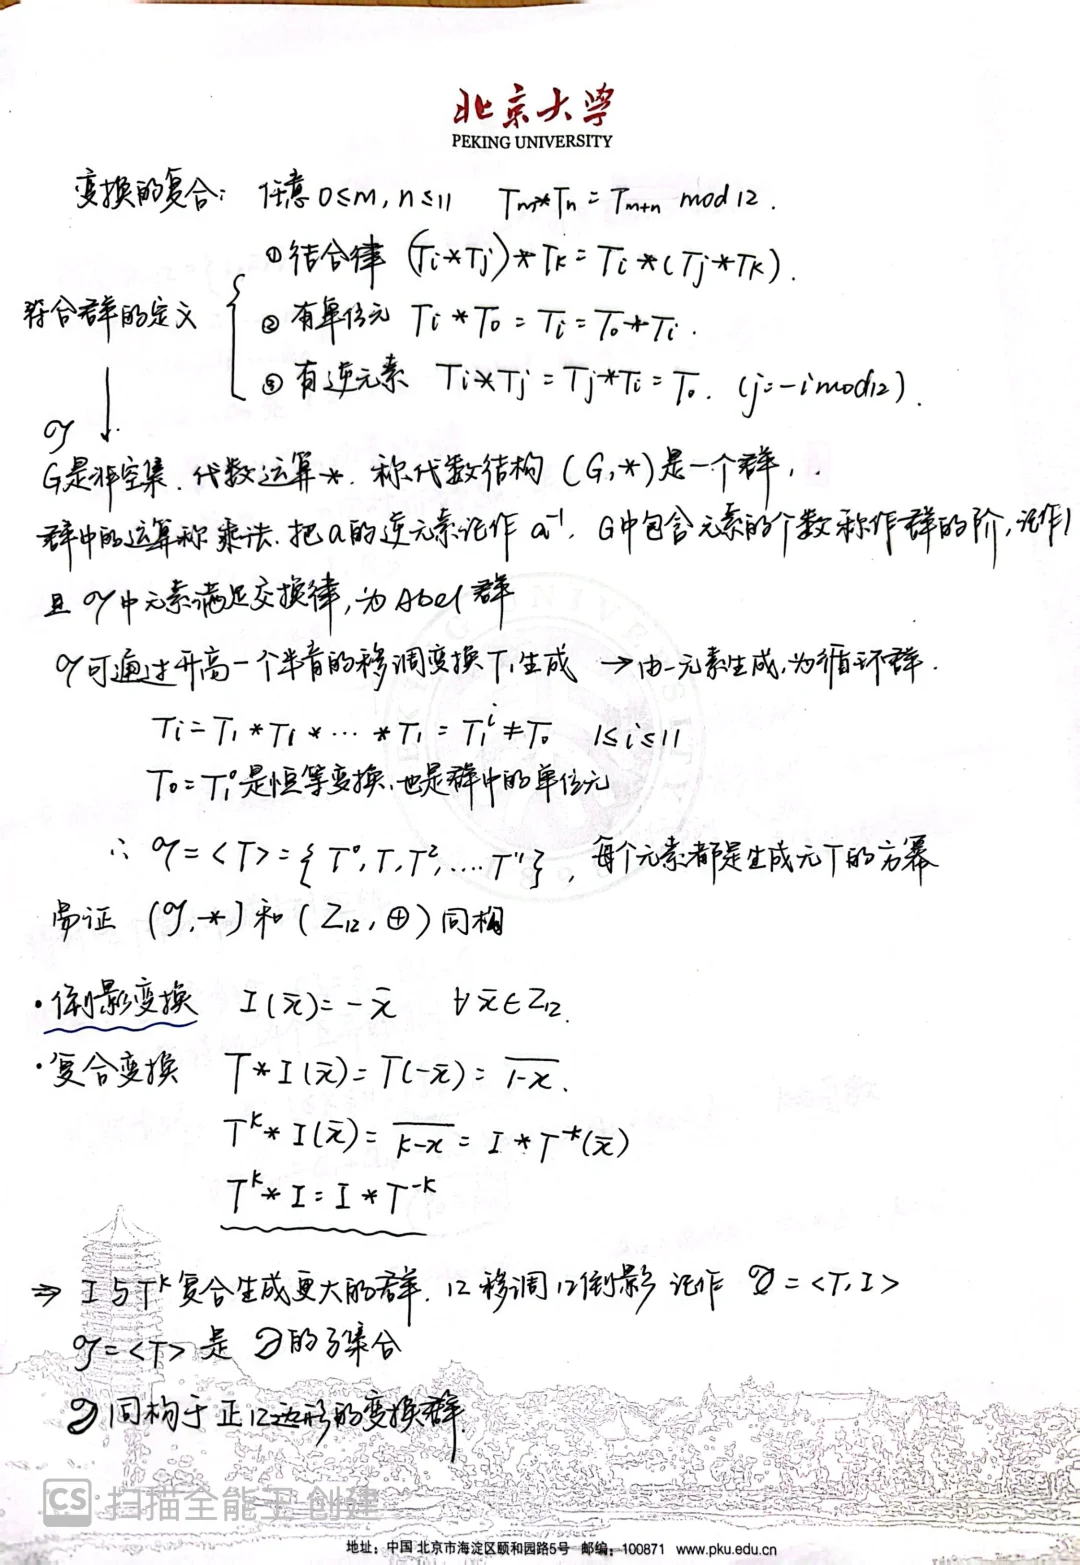 北京大学
PEKING UNIVERSITY
变换的复合: 任意 0≤m, n≤11 Tm*Tn = Tm+n mod 12.
① 结合律 (Ti*Tj)*Tk = Ti*(Tj*Tk).
符合群的定义 ② 有单位元 Ti*T0 = Ti = T0*Ti.
③ 有逆元素 Ti*Tj = Tj*Ti = T0. (j=-i mod 12).
𝒯
G是非空集. 代数运算*. 称代数结构 (G,*)是一个群,
群中的运算称乘法. 把a的逆元素记作 a⁻¹. G中包含元素的个数称作群的阶, 记作|
且 𝒯中元素满足交换律, 为 Abel 群
𝒯可通过升高一个半音的移调变换T₁生成 →由一元素生成, 为循环群.
Ti = T₁*T₁*⋯*T₁ = T₁ⁱ ≠ T₀ 1≤i≤11
T₀ = T₁⁰是恒等变换. 也是群中的单位元
∴ 𝒯 = <T> = { T⁰, T, T², .... T¹¹}, 每个元素都是生成元T的方幂
易证 (𝒯,*)和 (Z₁₂, ⊕)同构
· 倒影变换 I(x̄) = -x̄ ∀ x̄∈Z₁₂.
· 复合变换 T*I(x̄) = T(-x̄) = \overline{1-x}.
Tᵏ*I(x̄) = \overline{k-x} = I*T⁻ᵏ(x̄)
Tᵏ*I = I*T⁻ᵏ
⇒ I与Tᵏ复合生成更大的群. 12移调12倒影 记作 𝒟 = <T, I>
𝒯=<T> 是 𝒟的子集合
𝒟同构于正12边形的变换群.
CS 扫描全能王 创建
地址: 中国 北京市海淀区颐和园路5号 邮编: 100871 www.pku.edu.cn